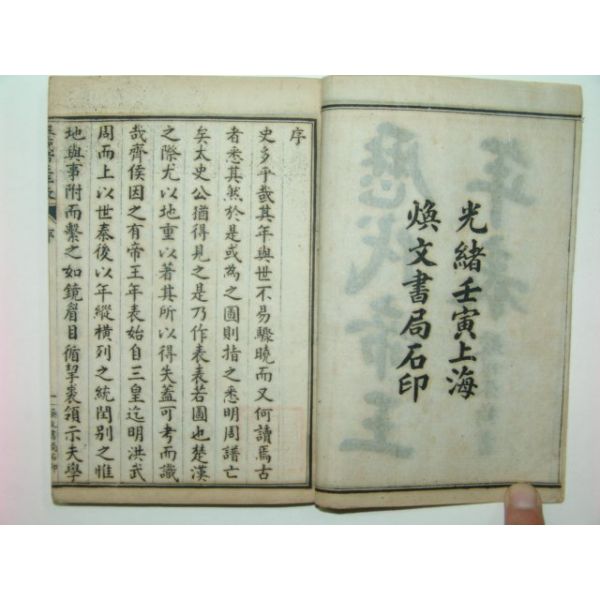 光緒壬寅上海
煥文書局石印
歷代帝王
年表
序
史多乎哉其年與世不易驟曉而又何讀焉古
者悉其然於是或為之圖則指之悉明周譜亡
矣太史公猶得見之是乃作表表若圖也楚漢
之際尤以地重以著其所以得失蓋可考而識
哉齊侯因之有帝王年表始自三皇迄明洪武
周而上以世秦後以年縱橫列之統閏別之惟
地與事附而繫之如鏡眉目循挈裘領示夫學
序